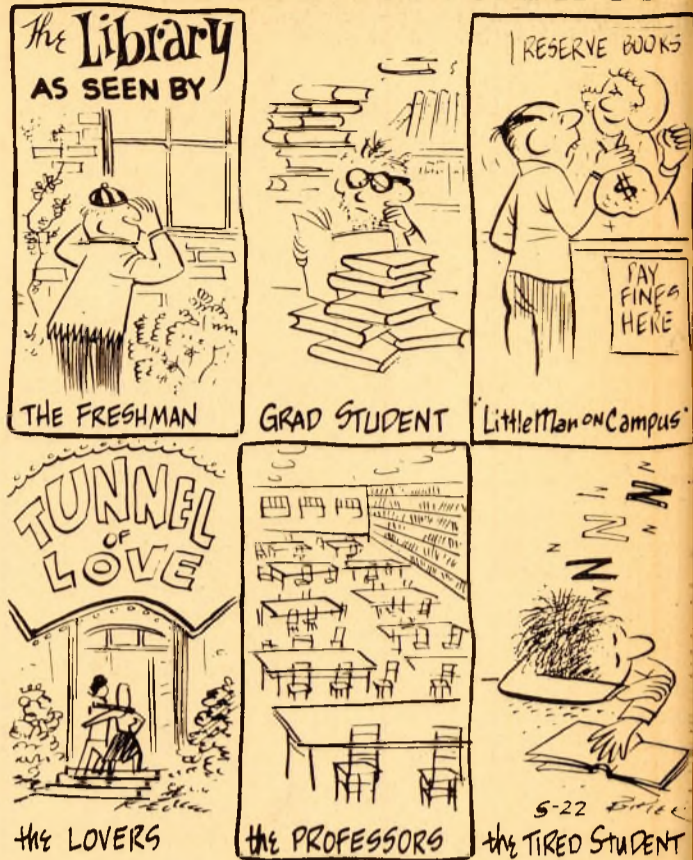 The Library
AS SEEN BY
THE FRESHMAN
GRAD STUDENT
RESERVE BOOKS
$
PAY
FINES
HERE
"Little Man ON Campus"
TUNNEL
OF
LOVE
the LOVERS
the PROFESSORS
Z
Z
Z
Z
N
N
5-22
the TIRED STUDENT